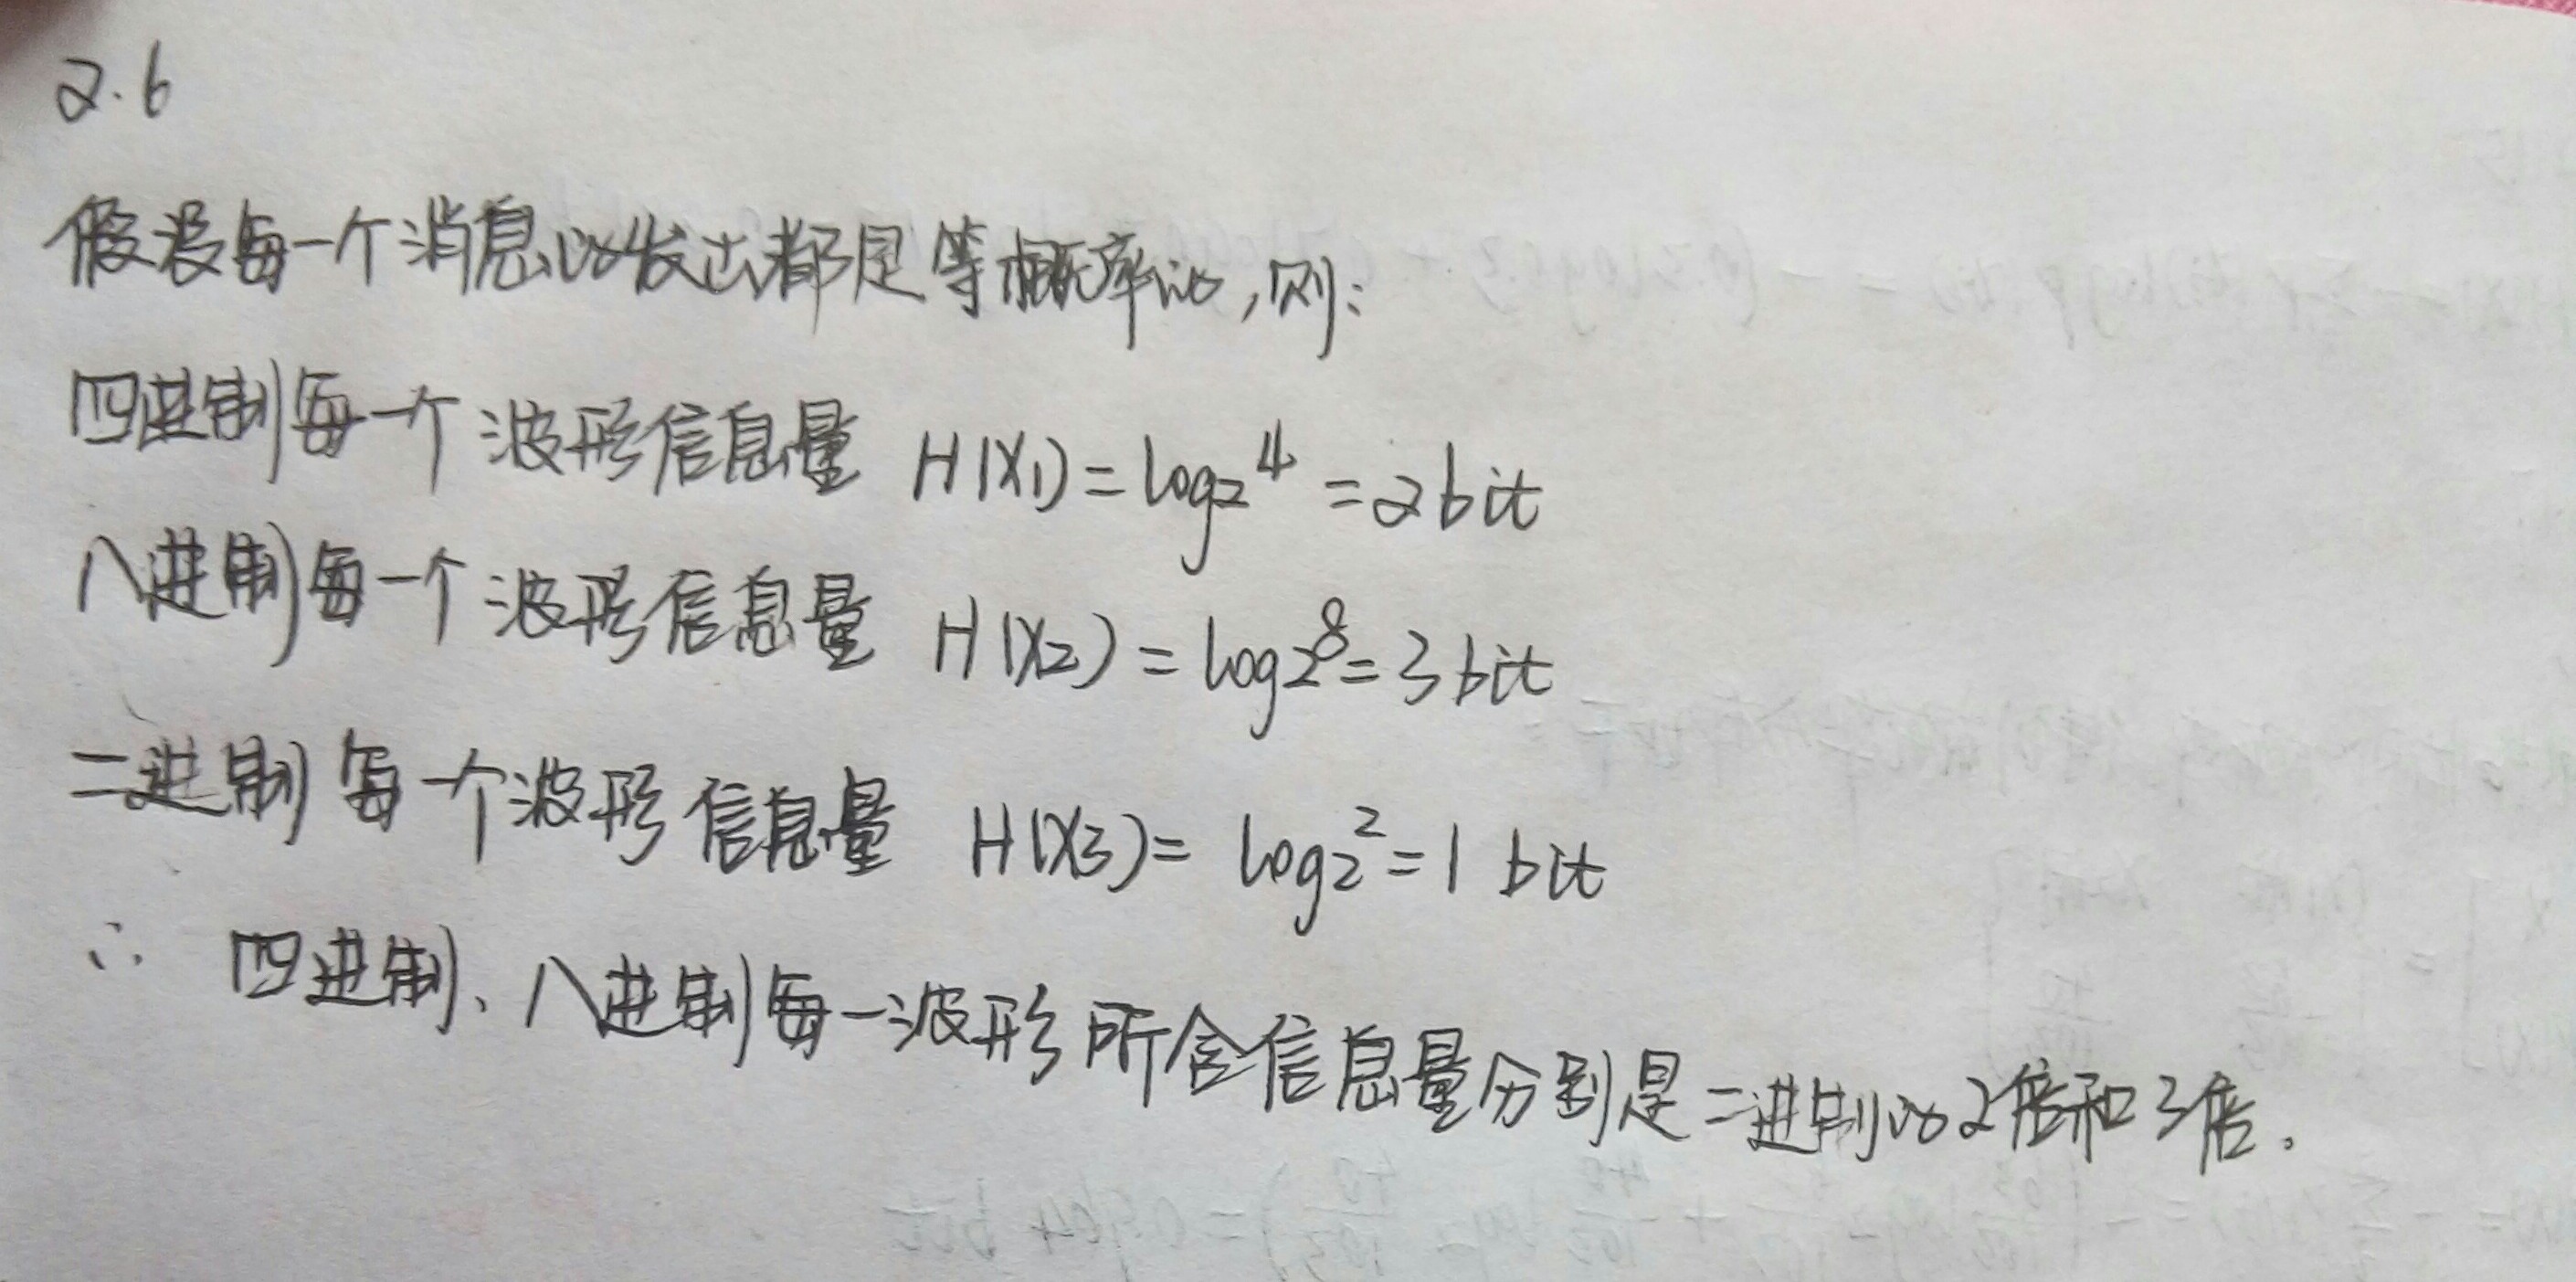 2.6
假设每一个消息的发出都是等概率的,则:
四进制每一个波形信息量 H(X1)=log2^4=2bit
八进制每一个波形信息量 H(X2)=log2^8=3bit
二进制每一个波形信息量 H(X3)=log2^2=1 bit
∴ 四进制、八进制每一波形所含信息量分别是二进制的2倍和3倍。